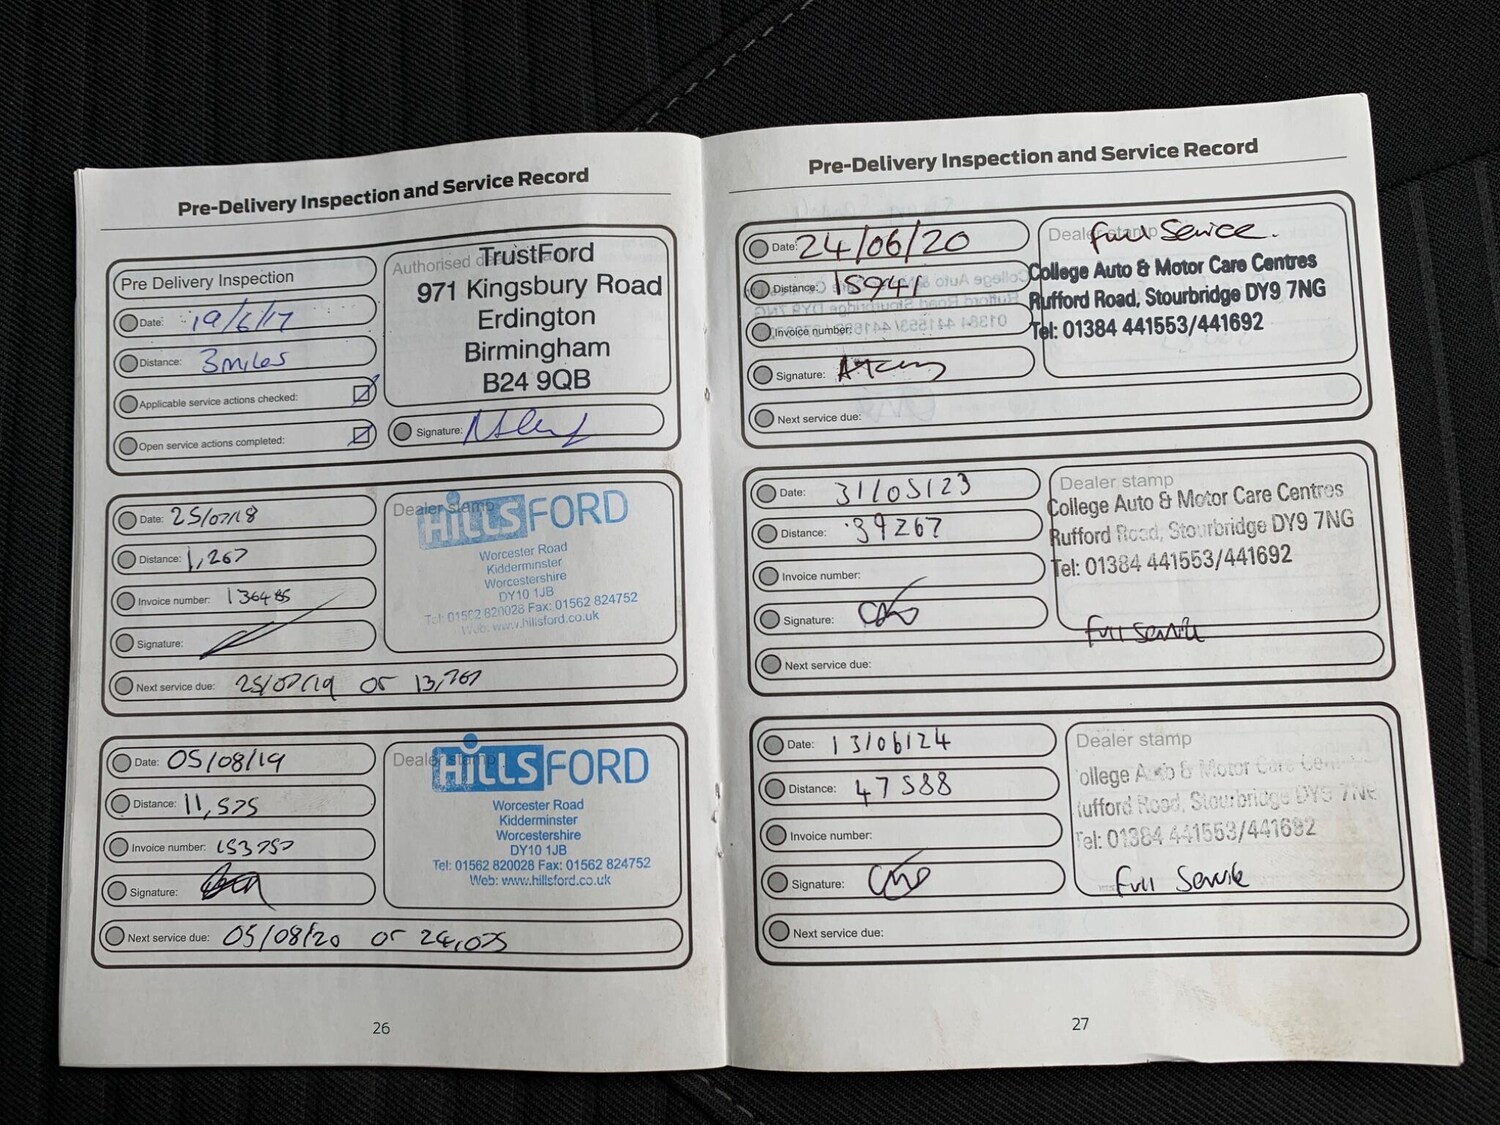 Pre-Delivery Inspection and Service Record
Pre Delivery Inspection
Date: 19/6/17
Distance: 3miles
Applicable service actions checked:
Open service actions completed:
Authorised
TrustFord
971 Kingsbury Road
Erdington
Birmingham
B24 9QB
Signature:
Date: 25/07/18
Distance: 1,267
Invoice number: 136485
Signature:
Next service due: 25/07/19 or 13,767
Dealer stamp
HILLS FORD
Worcester Road
Kidderminster
Worcestershire
DY10 1JB
Tel: 01562 820028 Fax: 01562 824752
Web: www.hillsford.co.uk
Date: 05/08/19
Distance: 11,575
Invoice number: 153757
Signature:
Next service due: 05/08/20 or 24,075
Dealer stamp
HILLS FORD
Worcester Road
Kidderminster
Worcestershire
DY10 1JB
Tel: 01562 820028 Fax: 01562 824752
Web: www.hillsford.co.uk
26
Pre-Delivery Inspection and Service Record
Date: 24/06/20
Distance: 15941
Invoice number:
Signature:
Next service due:
Dealer stamp
Full Service.
College Auto & Motor Care Centres
Rufford Road, Stourbridge DY9 7NG
Tel: 01384 441553/441692
Date: 31/05/23
Distance: 39267
Invoice number:
Signature:
Next service due:
Dealer stamp
College Auto & Motor Care Centres
Rufford Road, Stourbridge DY9 7NG
Tel: 01384 441553/441692
Full Service
Date: 13/06/24
Distance: 47588
Invoice number:
Signature:
Next service due:
Dealer stamp
ollege Auto & Motor Care Cen
ufford Road, Stourbridge DY9 7NG
Tel: 01384 441553/441692
Full Service
27